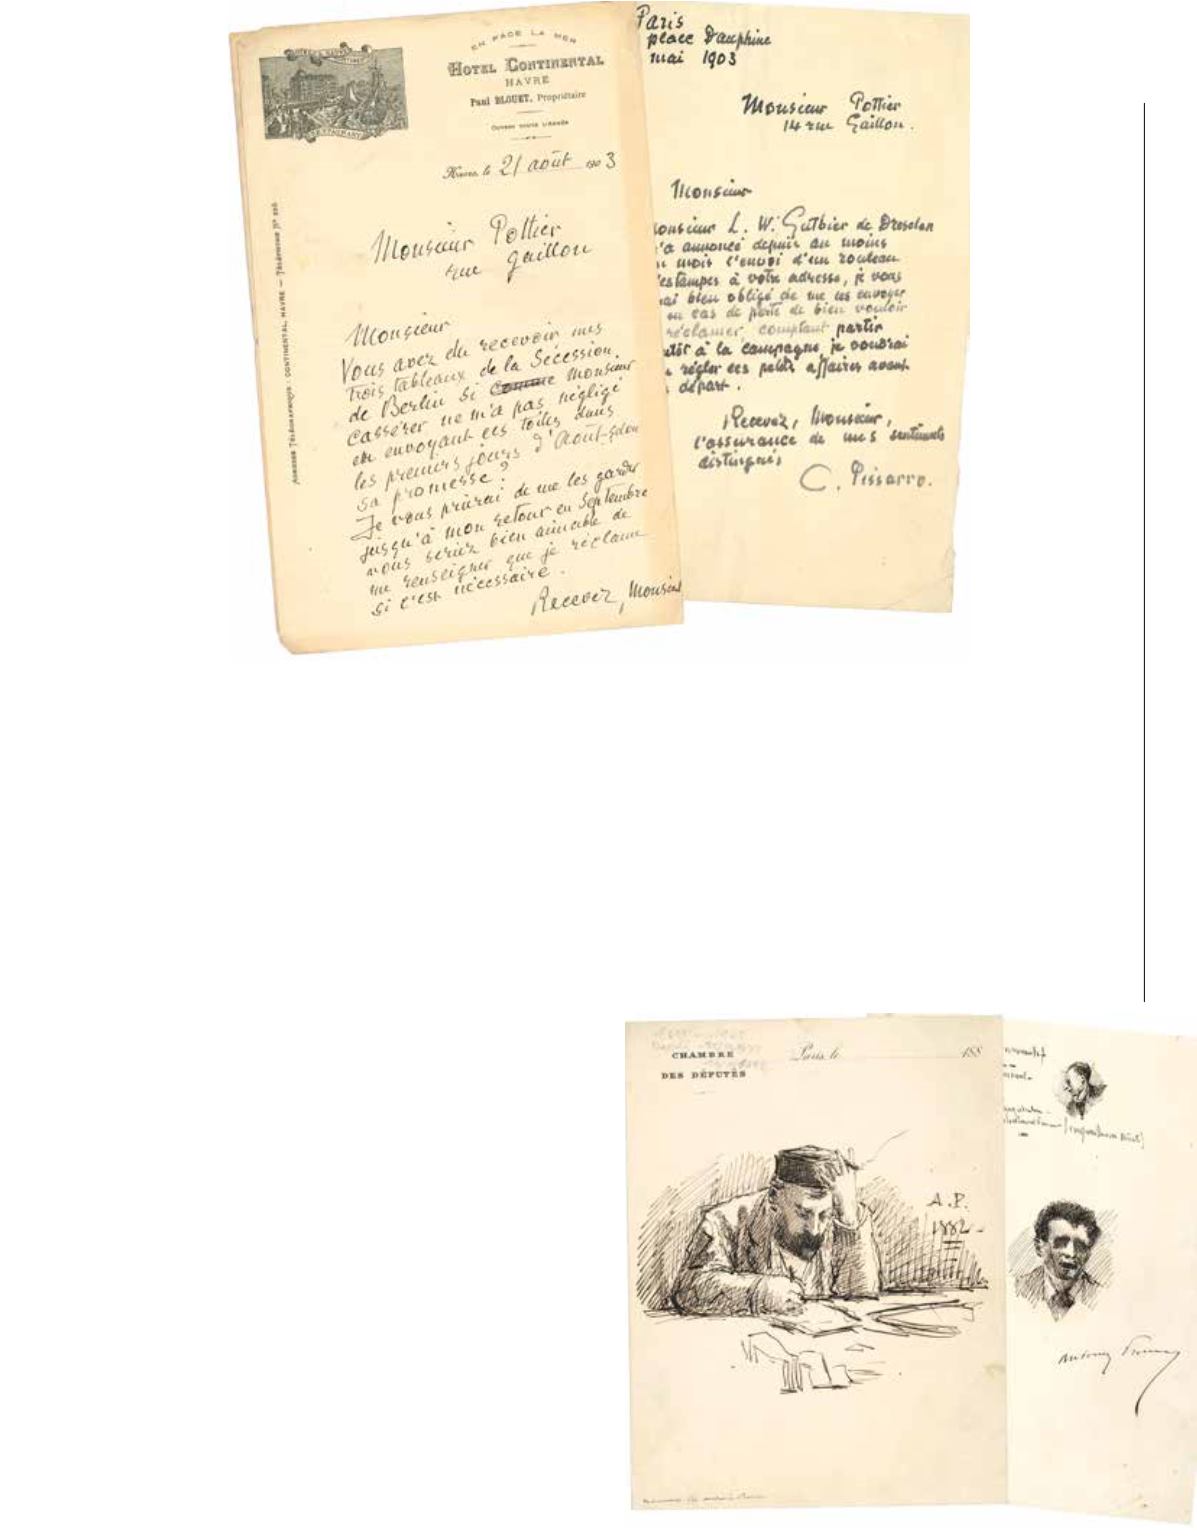 EN FACE LA MER
HOTEL CONTINENTAL
HAVRE
Paul BLOUET, Propriétaire
OUVERT TOUTE L'ANNÉE
Havre, le 21 août 1903
ADRESSE TÉLÉGRAPHIQUE : CONTINENTAL, HAVRE — TÉLÉPHONE Nº 226
Monsieur Pottier
rue Gaillon
Monsieur
Vous avez du recevoir mes
trois tableaux de la Sécession
de Berlin si comme Monsieur
Cassérer ne m'a pas négligé
en envoyant ces toiles dans
les premiers jours d'Août selon
sa promesse ?
Je vous prirai de me les garder
jusqu'à mon retour en Septembre
vous seriez bien aimable de
me renseigner que je réclame
si c'est nécessaire.
Recevez, Monsieur
Paris
place Dauphine
mai 1903
Monsieur Pottier
14 rue Gaillon.
Monsieur
onsieur L. W. Gutbier de Dresden
'a annoncé depuis au moins
mois l'envoi d'un rouleau
'estampes à votre adresse, je vous
rai bien obligé de me les envoyer
ou cas de perte de bien vouloir
réclamer, comptant partir
ntôt à la campagne je voudrai
régler ces petites affaires avant
départ.
Recevez, Monsieur,
l'assurance de mes sentiments
distingués
C. Pissarro.
CHAMBRE
DES DÉPUTÉS
Paris, le 188
A.P.
1882